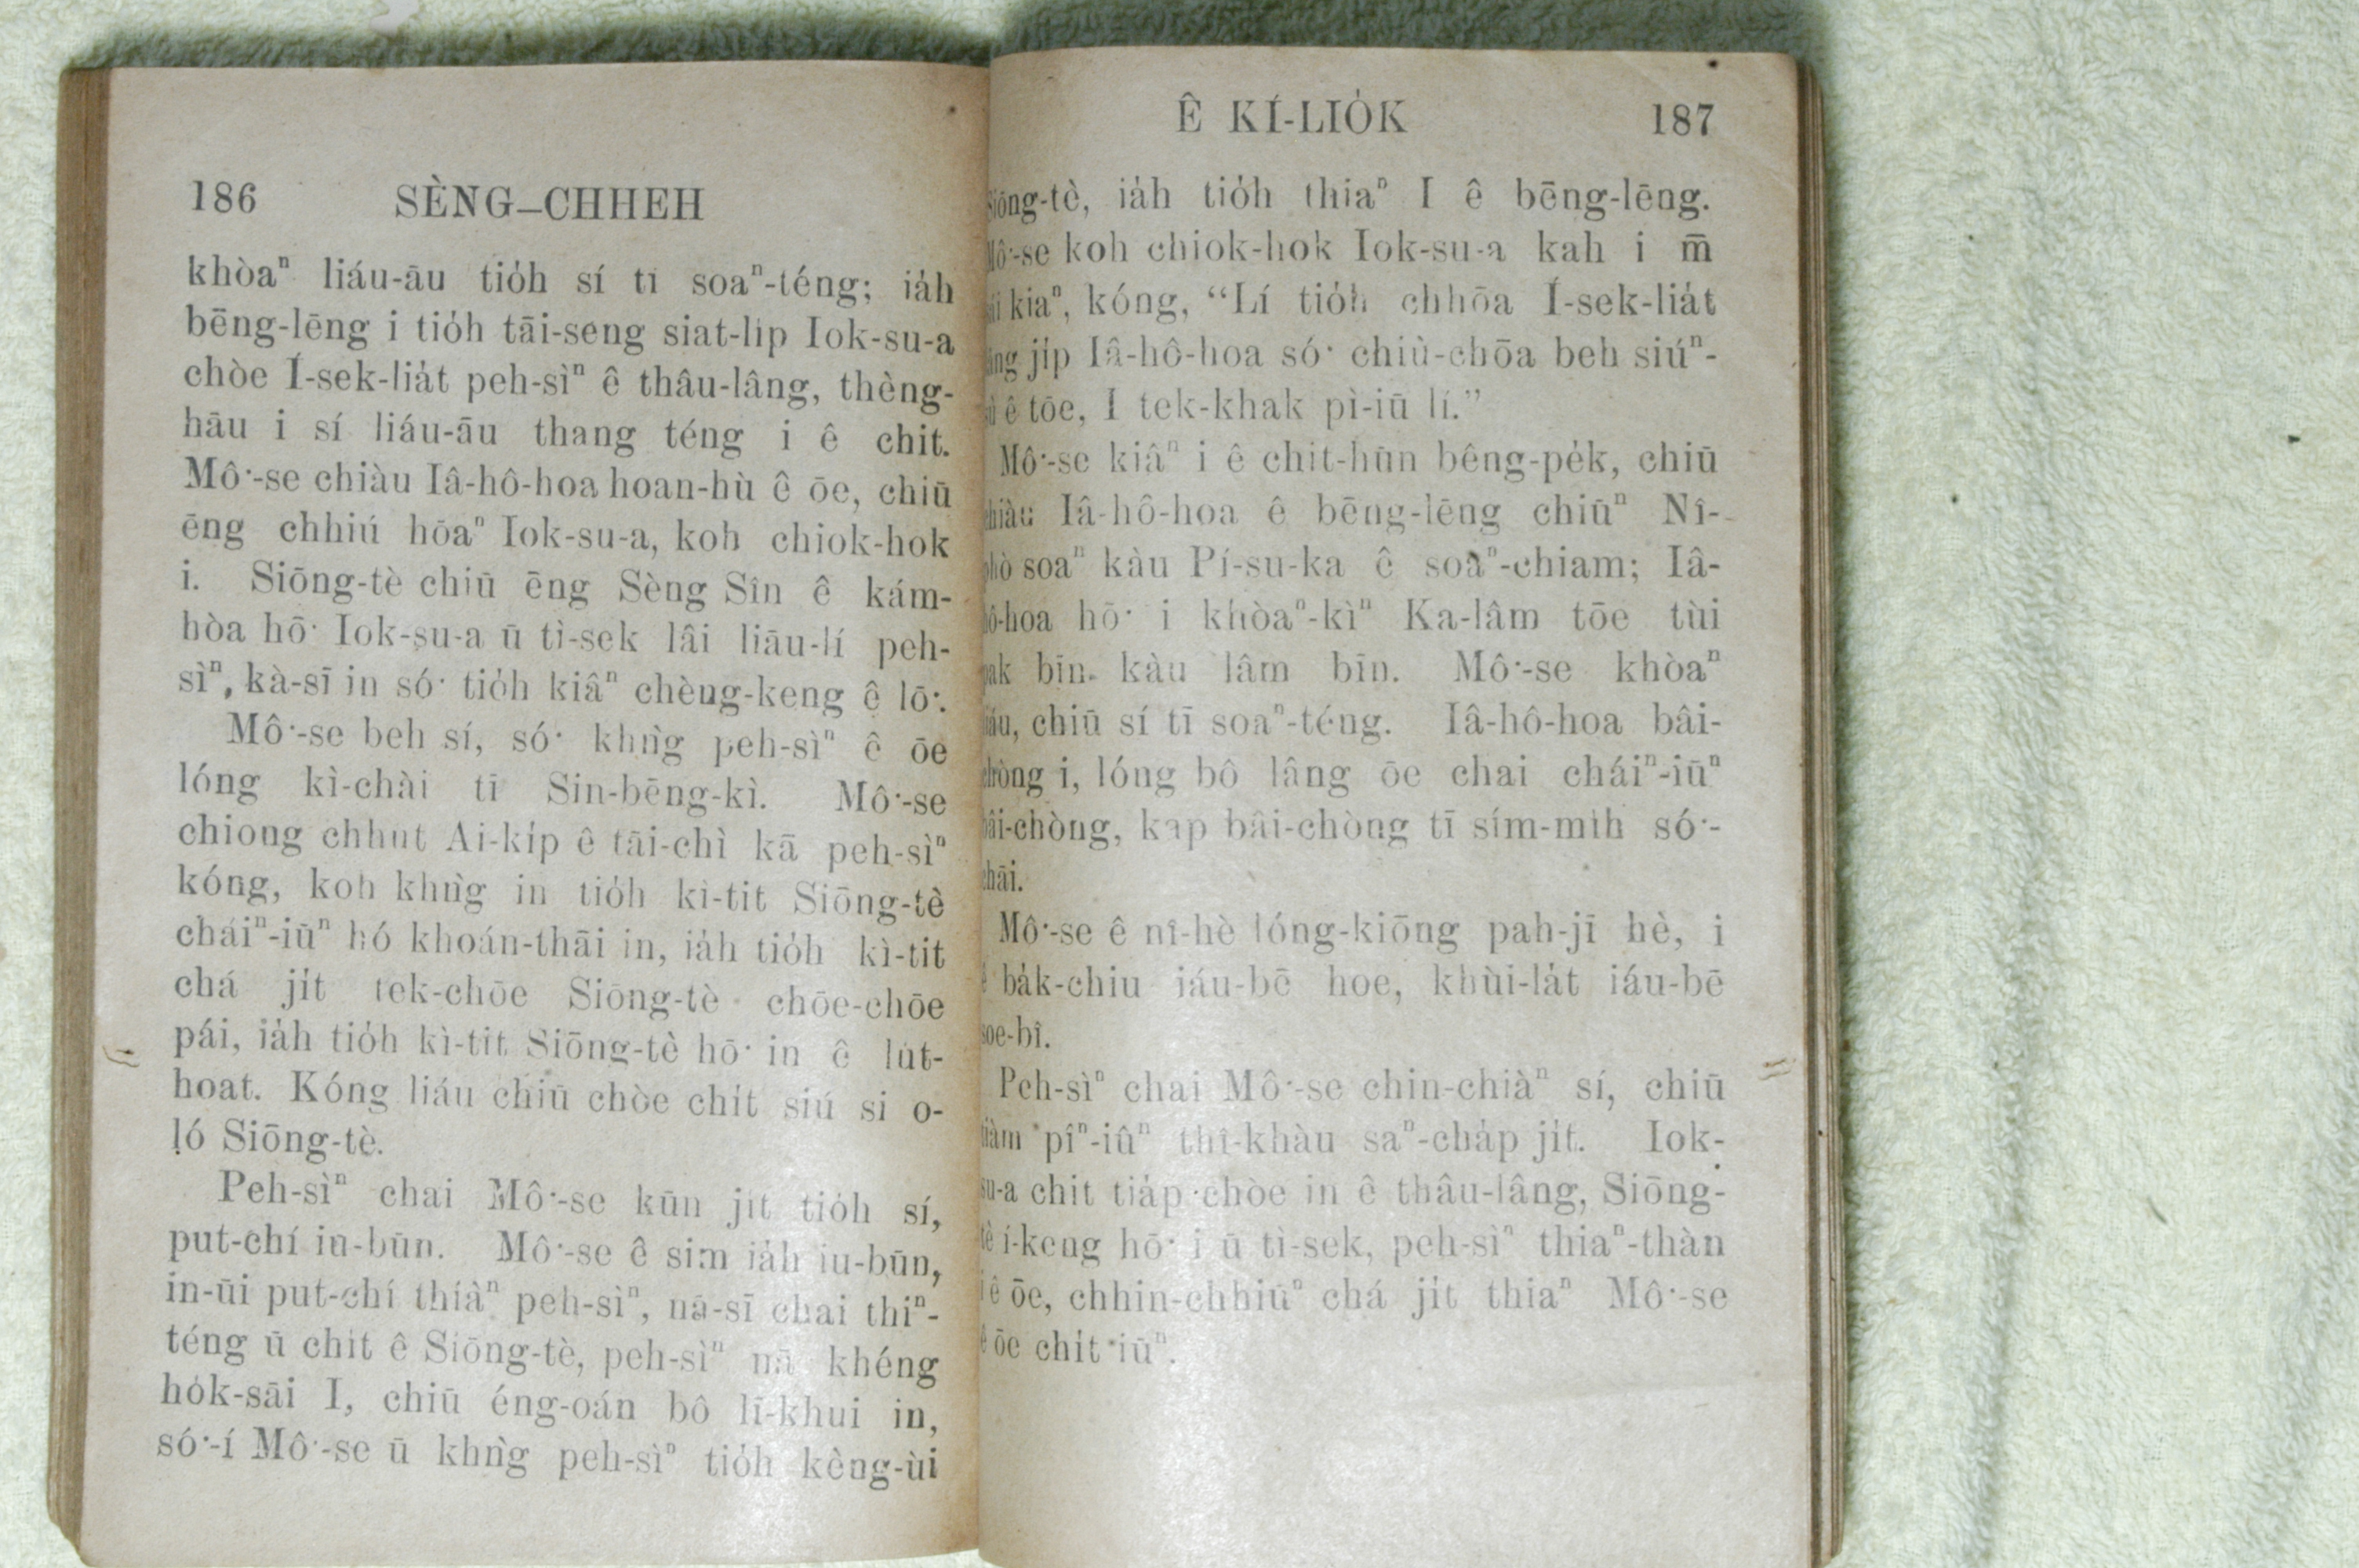 186 SÈNG–CHHEH
khòaⁿ liáu-āu tio̍h sí tī soaⁿ-téng; ia̍h
bēng-lēng i tio̍h tāi-seng siat-li̍p Iok-su-a
chòe Í-sek-lia̍t peh-sìⁿ ê thâu-lâng, thèng-
hāu i sí liáu-āu thang téng i ê chit.
Mô͘-se chiàu Iâ-hô-hoa hoan-hù ê ōe, chiū
ēng chhiú hōaⁿ Iok-su-a, koh chiok-hok
i. Siōng-tè chiū ēng Sèng Sîn ê kám-
hòa hō͘ Iok-su-a ū tì-sek lâi liāu-lí peh-
sìⁿ, kà-sī in só͘ tio̍h kiâⁿ chèng-keng ê lō͘.
Mô͘-se beh sí, só͘ khǹg peh-sìⁿ ê ōe
lóng kì-chài tī Sin-bēng-kì. Mô͘-se
chiong chhut Ai-ki̍p ê tāi-chì kā peh-sìⁿ
kóng, koh khǹg in tio̍h kì-tit Siōng-tè
cháiⁿ-iūⁿ hó khoán-thāi in, ia̍h tio̍h kì-tit
chá ji̍t tek-chōe Siōng-tè chōe-chōe
pái, ia̍h tio̍h kì-tit Siōng-tè hō͘ in ê lu̍t-
hoat. Kóng liáu chiū chòe chi̍t siú si o-
ló Siōng-tè.
Peh-sìⁿ chai Mô͘-se kūn ji̍t tio̍h sí,
put-chí iu-būn. Mô͘-se ê sim ia̍h iu-būn,
in-ūi put-chí thíàⁿ peh-sìⁿ, nā-sī chai thiⁿ-
téng ū chi̍t ê Siōng-tè, peh-sìⁿ nā khéng
ho̍k-sāi I, chiū éng-oán bô lī-khui in,
só͘-í Mô͘-se ū khǹg peh-sìⁿ tio̍h kèng-ùi
Ê KÍ-LIO̍K 187
Siōng-tè, ia̍h tio̍h thiaⁿ I ê bēng-lēng.
Mô͘-se koh chiok-hok Iok-su-a kah i m̄
kiaⁿ, kóng, “Lí tio̍h chhōa Í-sek-lia̍t
ji̍p Iâ-hô-hoa só͘ chiù-chōa beh siúⁿ-
ê tōe, I tek-khak pì-iū lí.”
Mô͘-se kiâⁿ i ê chit-hūn bêng-pe̍k, chiū
chiàu Iâ-hô-hoa ê bēng-lēng chiūⁿ Nî-
soaⁿ kàu Pí-su-ka ê soaⁿ-chiam; Iâ-
hô-hoa hō͘ i khòaⁿ-kìⁿ Ka-lâm tōe tùi
pak bīn kàu lâm bīn. Mô͘-se khòaⁿ
liáu, chiū sí tī soaⁿ-téng. Iâ-hô-hoa bâi-
chòng i, lóng bô lâng ōe chai cháiⁿ-iūⁿ
bâi-chòng, kap bâi-chòng tī sím-mih só͘-
chāi.
Mô͘-se ê nî-hè lóng-kiōng pah-jī hè, i
ê ba̍k-chiu iáu-bē hoe, khùi-la̍t iáu-bē
soe-bî.
Peh-sìⁿ chai Mô͘-se chin-chiàⁿ sí, chiū
tiàm pîⁿ-iûⁿ thî-khàu saⁿ-cha̍p ji̍t. Iok-
su-a chit tia̍p chòe in ê thâu-lâng, Siōng-
tè í-keng hō͘ i ū tì-sek, peh-sìⁿ thiaⁿ-thàn
i ê ōe, chhin-chhiūⁿ chá ji̍t thiaⁿ Mô͘-se
ê ōe chi̍t iūⁿ.